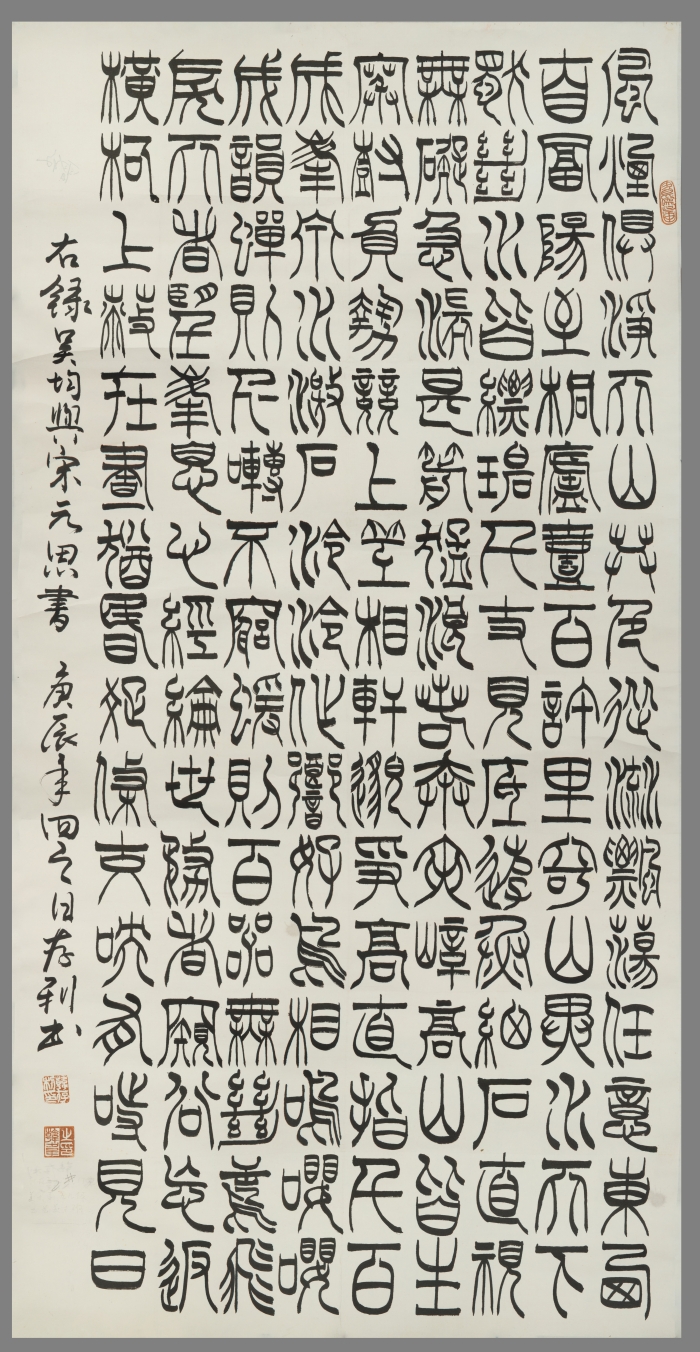 風煙俱淨天山共色從流飄蕩任意東西
自富陽至桐廬壹百許里奇山異水天下
獨絕水皆縹碧千丈見底游魚細石直視
無礙急湍甚箭猛浪若奔夾嶂高山皆生
寒樹負勢競上互相軒邈爭高直指千百
成峯泉水激石泠泠作響好鳥相鳴嚶嚶
成韻蟬則千囀不窮猨則百叫無絕鳶飛
戾天者望峯息心經綸世務者窺谷忘返
橫柯上蔽在晝猶昏疏條交映有時見日
右錄吳均與宋元思書 庚辰年四之日存利書